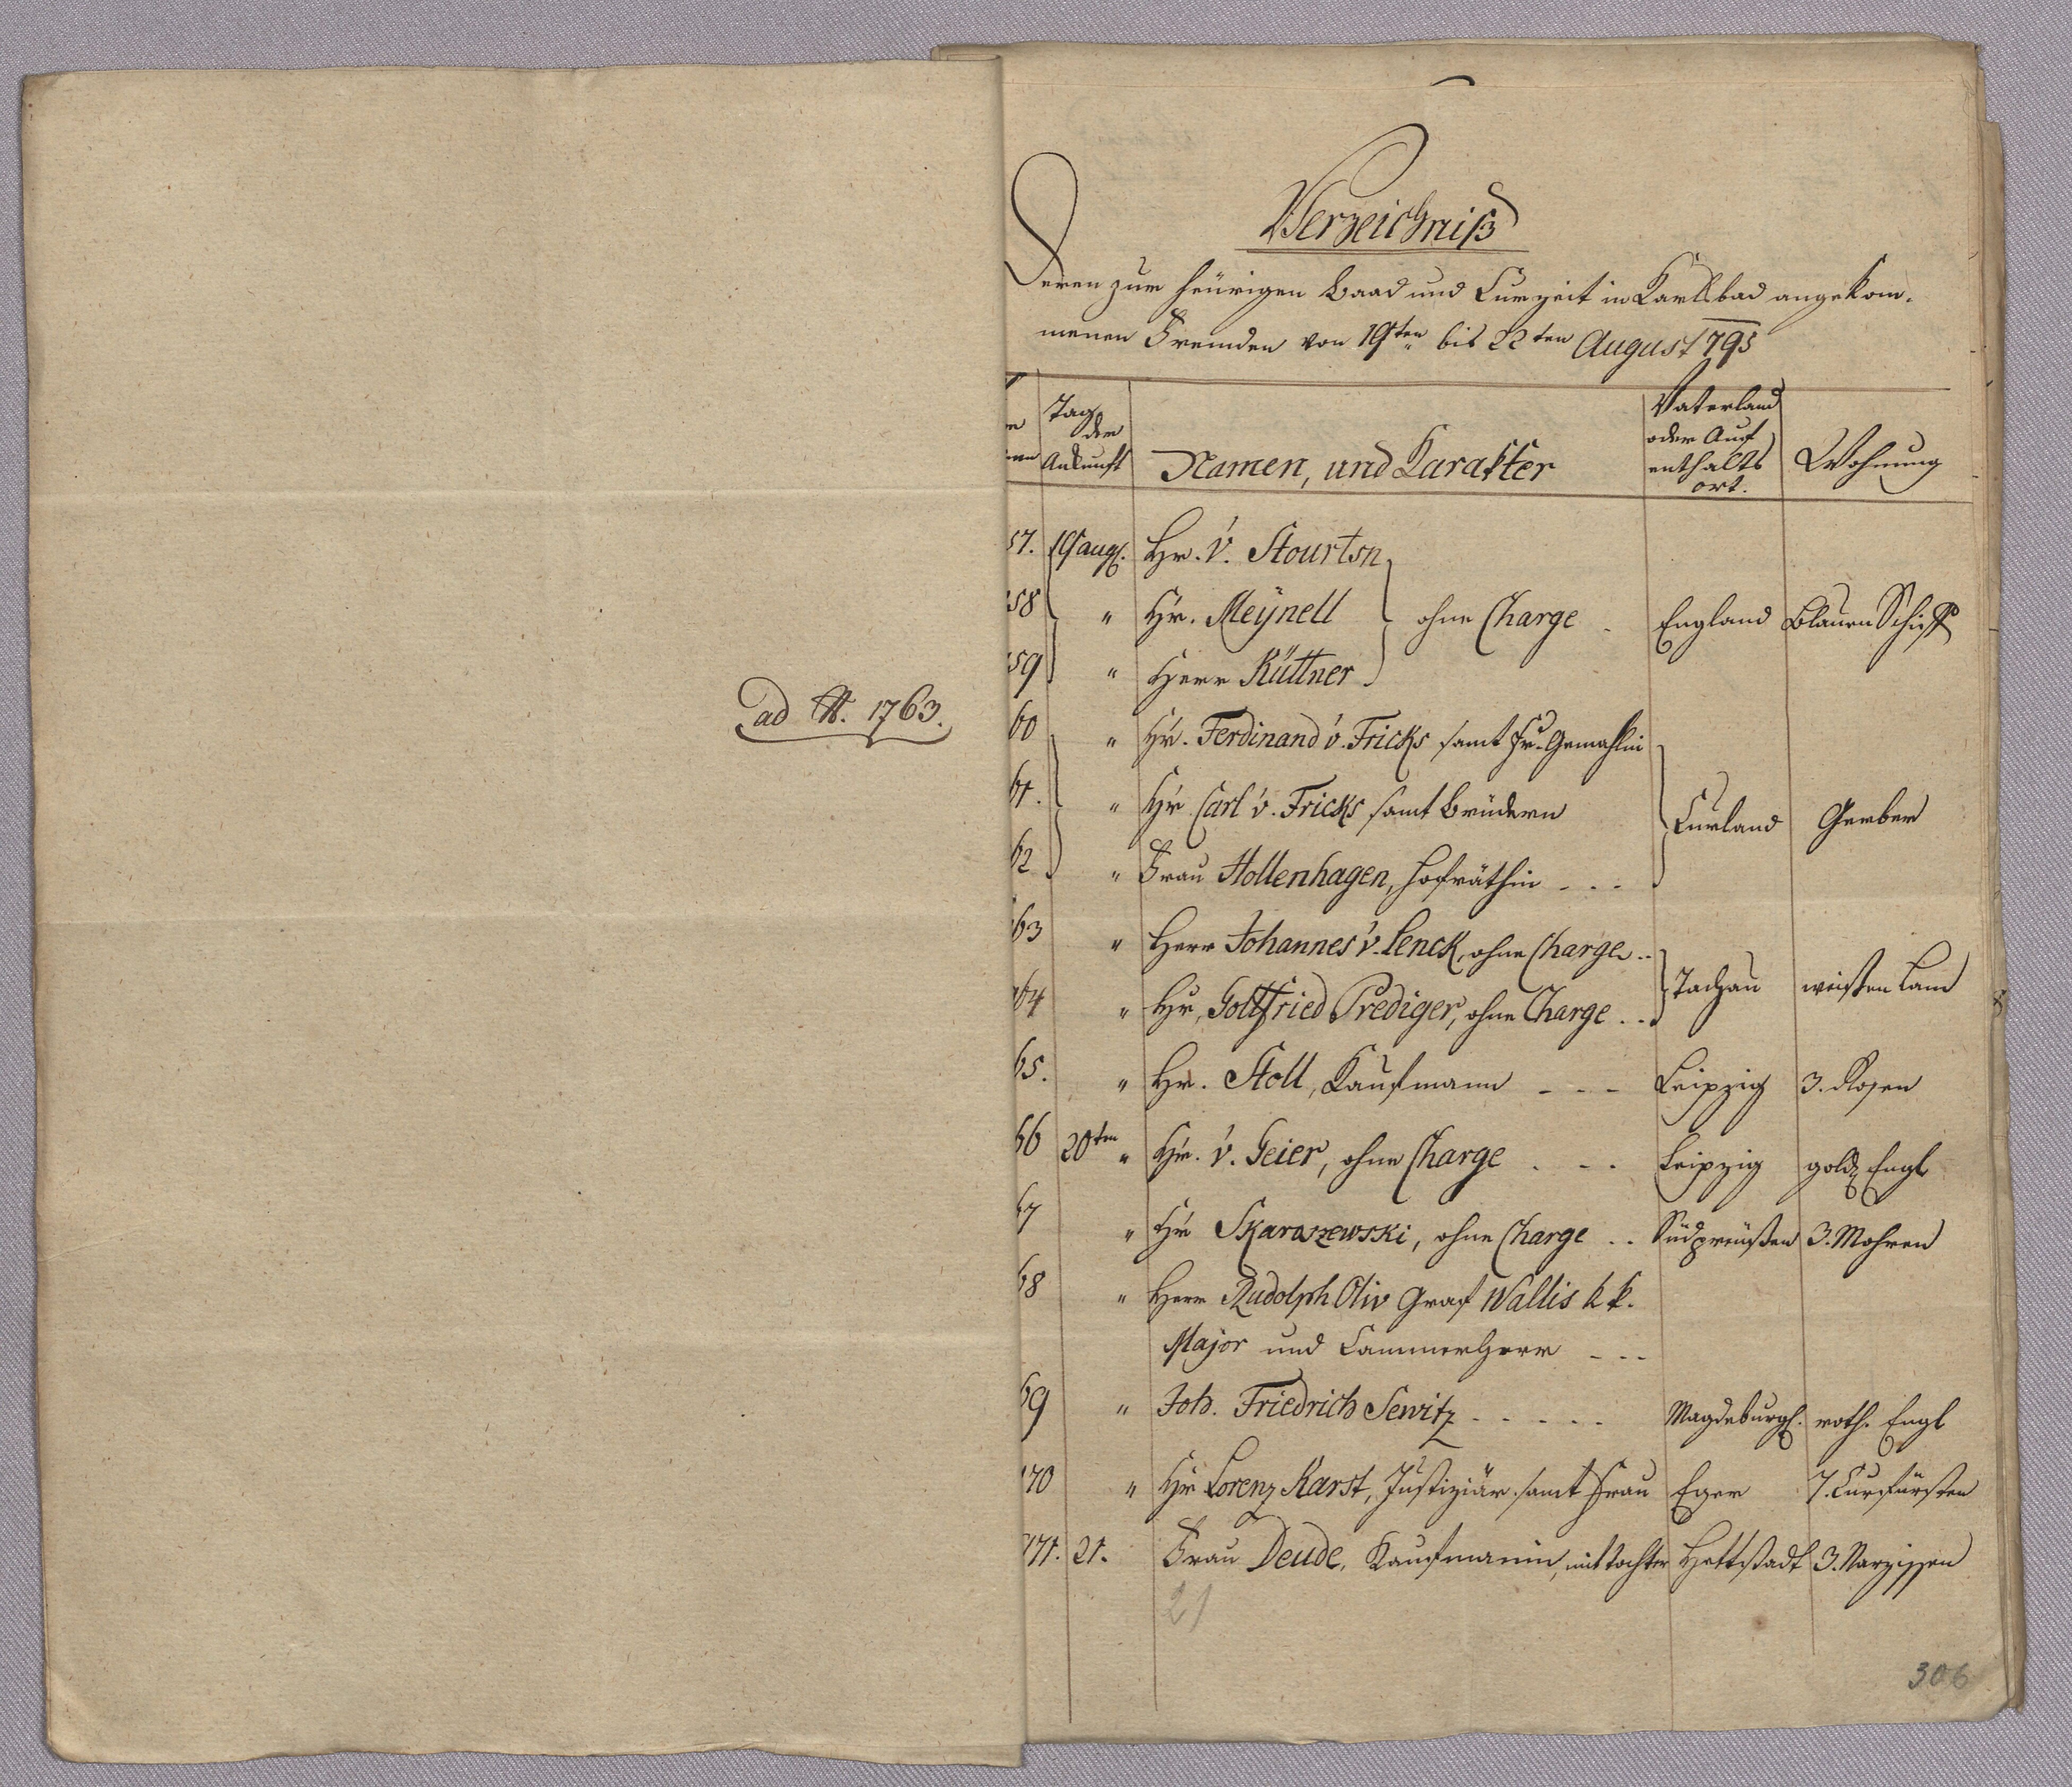 ad N. 1763.
Verzeichniß
Deren zur heürigen Baad und Curzeit in Karlsbad angekom-
menen Fremden von 19ten bis 22ten August 795
Tag der Ankunft
Namen, und Karakter
Vaterland oder Auf enthalts ort.
Wohnung
57. 19 aug. Hr. v. Stourton
58 " Hr. Meÿnell ohne Charge England Blauen Schiff
59 " Herr Küttner
60 " Hr. Ferdinand v. Fricks samt Fr. Gemahlin
61. " Hr Carl v. Fricks samt Brüdern Curland Gerber
62 " Frau Hollenhagen, Hofräthin - - -
63 " Herr Johannes v. Lenck, ohne Charge ..
64 " Hr. Gottfried Prediger, ohne Charge .. Tachau weißen Lam
65. " Hr. Stoll, Kaufmann - - - Leipzig 3. Rosen
66 20ten " Hr. v. Geier, ohne Charge . - . Leipzig gold Engl
67 " Hr Skaraszewski, ohne Charge .. Südpreüßen 3. Mohren
68 " Herr Rudolph Oliv Graf Wallis k k.
Major und Cammerherr - - -
69 " Joh. Friedrich Sewitz - - - - - Magdeburg. roth. Engl
170 " Hr Lorenz Karst, Justiziär samt Frau Eger 7. Curfürsten
171. 21. Frau Deude, Kaufmanin, mit tochter Hettstadt 3. Narzissen
21
306